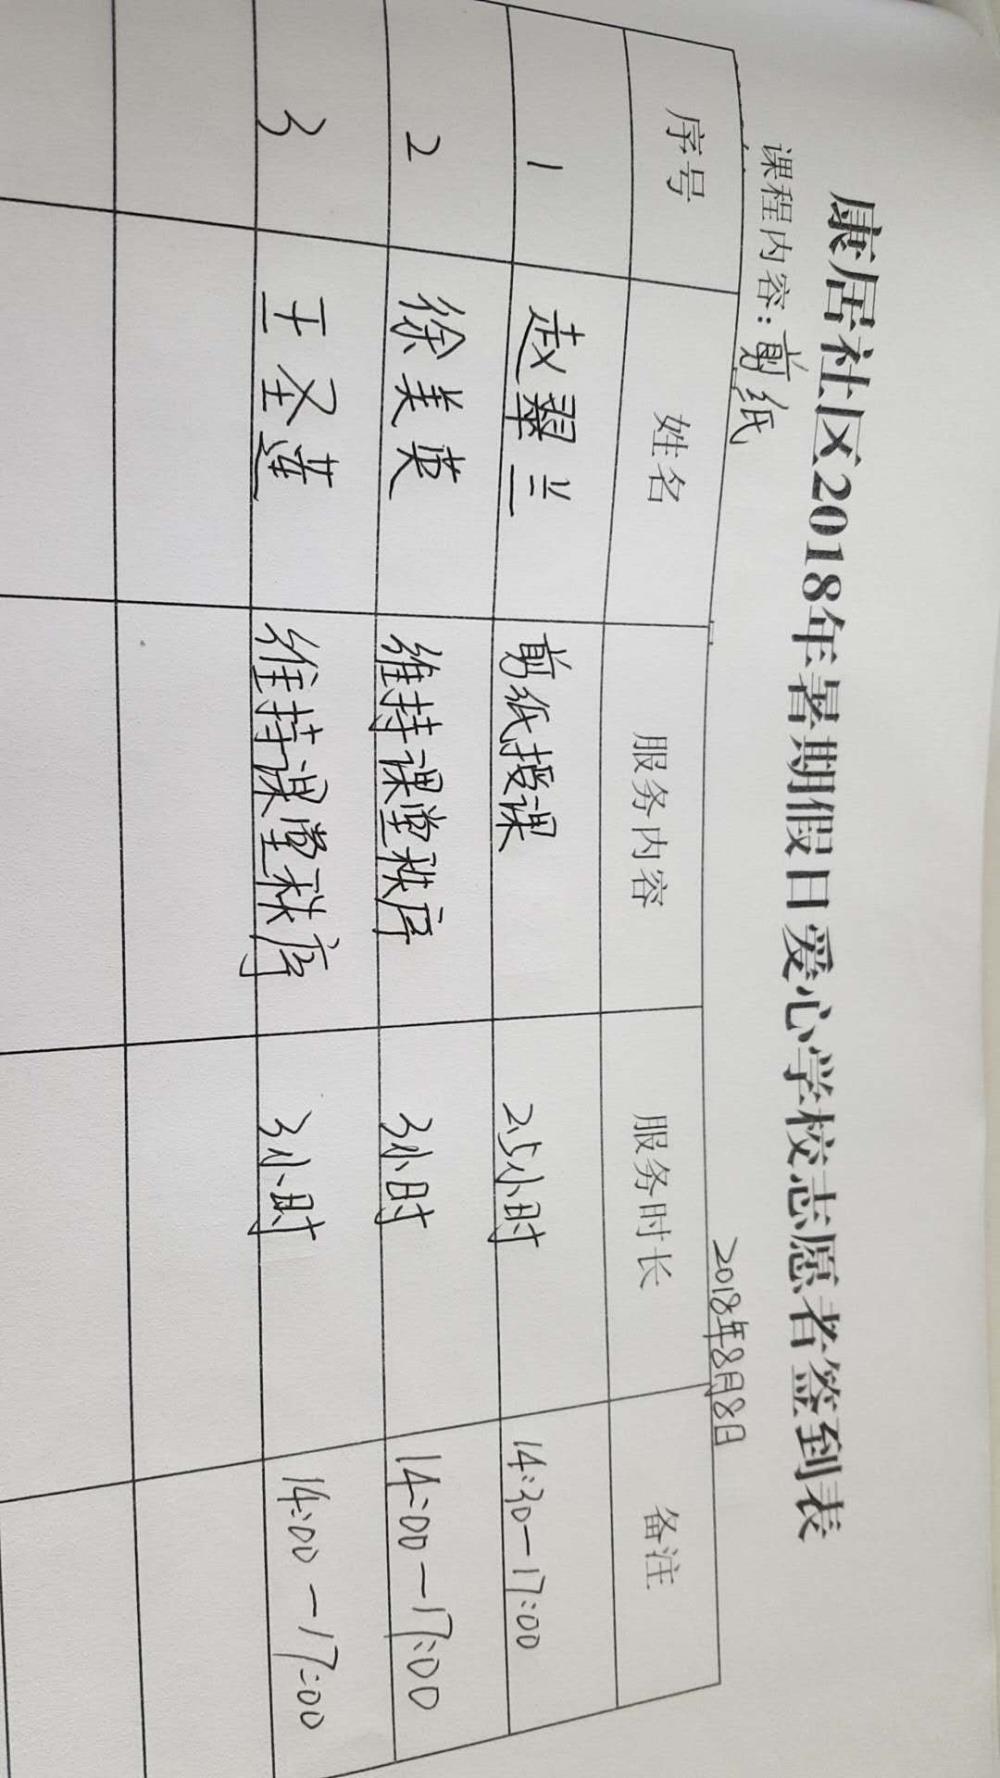 康居社区2018年暑期假日爱心学校志愿者签到表
课程内容：剪纸 2018年8月8日
序号 姓名 服务内容 服务时长 备注
1 赵翠兰 剪纸授课 2.5小时 14:30-17:00
2 徐美英 维持课堂秩序 3小时 14:00-17:00
3 王圣莲 维持课堂秩序 3小时 14:00-17:00